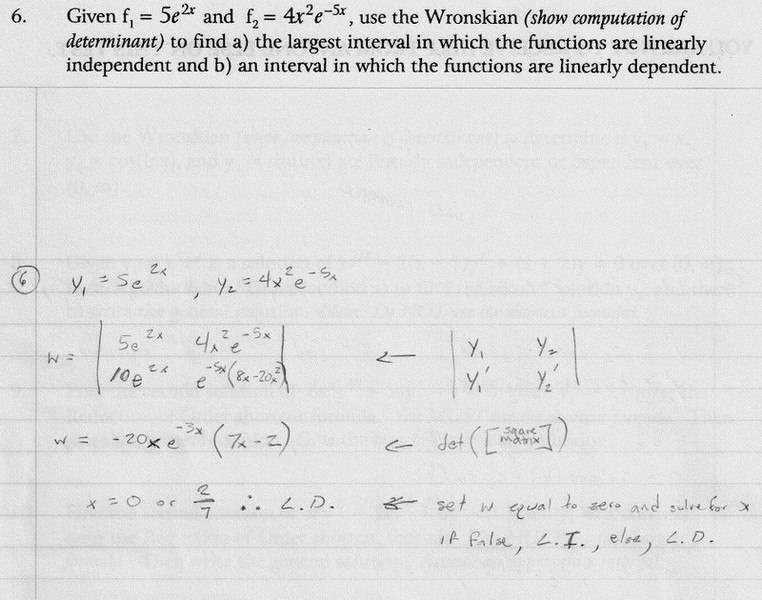 6. Given f₁ = 5e²ˣ and f₂ = 4x²e⁻⁵ˣ, use the Wronskian (show computation of
determinant) to find a) the largest interval in which the functions are linearly
independent and b) an interval in which the functions are linearly dependent.
⑥ y₁ = 5e²ˣ , y₂ = 4x²e⁻⁵ˣ
w = | 5e²ˣ 4x²e⁻⁵ˣ | ← | y₁ y₂ |
| 10e²ˣ e⁻⁵ˣ(8x-20x²) | | y₁' y₂' |
w = -20xe⁻³ˣ (7x-2) ← det ([sqare matrix])
x = 0 or 2/7 ∴ L.D. ← set w equal to zero and solve for x
if false, L.I., else, L.D.